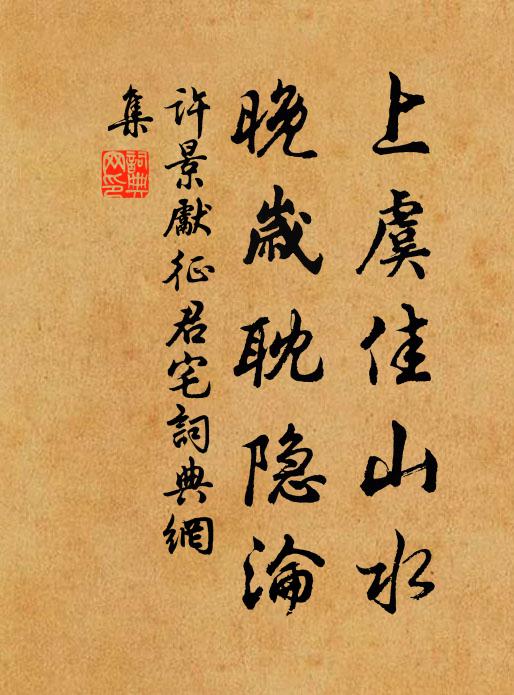 上虞佳山水
晚岁耽隐淪
許景獻征君宅詞典網
集
詞典網印